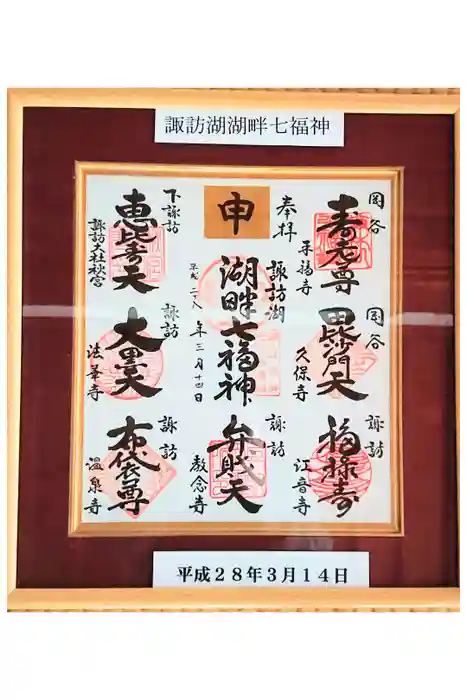 諏訪湖湖畔七福神
岡谷
寿老尊
平福寺
岡谷
毘沙門天
久保寺
諏訪
福禄寿
江音寺
奉拝
申
諏訪湖
湖畔七福神
平成二八年三月十四日
諏訪
弁財天
教念寺
下諏訪
恵比寿天
諏訪大社秋宮
諏訪
大黒天
法華寺
諏訪
布袋尊
温泉寺
平成28年3月14日